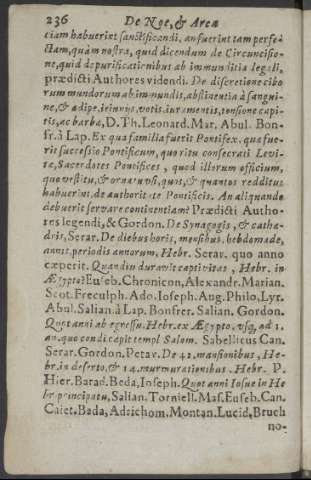 236 De Noe, & Arca
etiam habuerint sanctificandi, an fuerint tam perfe-
ctam, quàm nostra, quid dicendum de Circuncisio-
ne, quid de purificationibus ab immunditia legali,
prædicti Authores videndi. De discretione cibo
rum mundorum ab immundis, abstinentia à sangui-
ne, & adipe, ieiuniis, votis, iuramentis, tonsione capi-
tis, ac barba, D. Th. Leonard. Mar. Abul. Bon-
fr. à Lap. Ex qua familia fuerit Pontifex, qua fue-
rit successio Pontificum, quo ritu consecrati Levi-
tæ, Sacerdotes Pontifices, quod illorum officium,
quo vestitu, & ornatu usi, quos, & quantos redditus
habuerint, de authoritate Pontificis. An aliquando
debuerit servare continentiam? Prædicti Autho-
res legendi, & Gordon. De Synagogis, & cathe-
dris, Serar. De diebus horis, mensibus, hebdomade,
annis, periodis annorum, Hebr. Serar. quo anno
cæperit. Quandiu duravit captivitas, Hebr. in
Ægypto? Euseb. Chronicon, Alexandr. Marian.
Scot. Freculph. Ado. Ioseph. Aug. Philo, Lyr.
Abul. Salian. à Lap. Bonfrer. Salian. Gordon.
Quot anni ab egressu. Hebr. ex Ægypto, usq, ad 1.
an. quo condi cæpit templ. Salom. Sabellicus Can.
Serar. Gordon. Petav. De 42. mansionibus, He-
br. in deserto, & 14. murmurationibus. Hebr. P.
Hier. Barad. Beda, Ioseph. Quot anni Iosue in He
br principatu, Salian. Torniell. Mas. Euseb. Can.
Caiet. Bada, Adrichom. Montan. Lucid, Bruch
no-